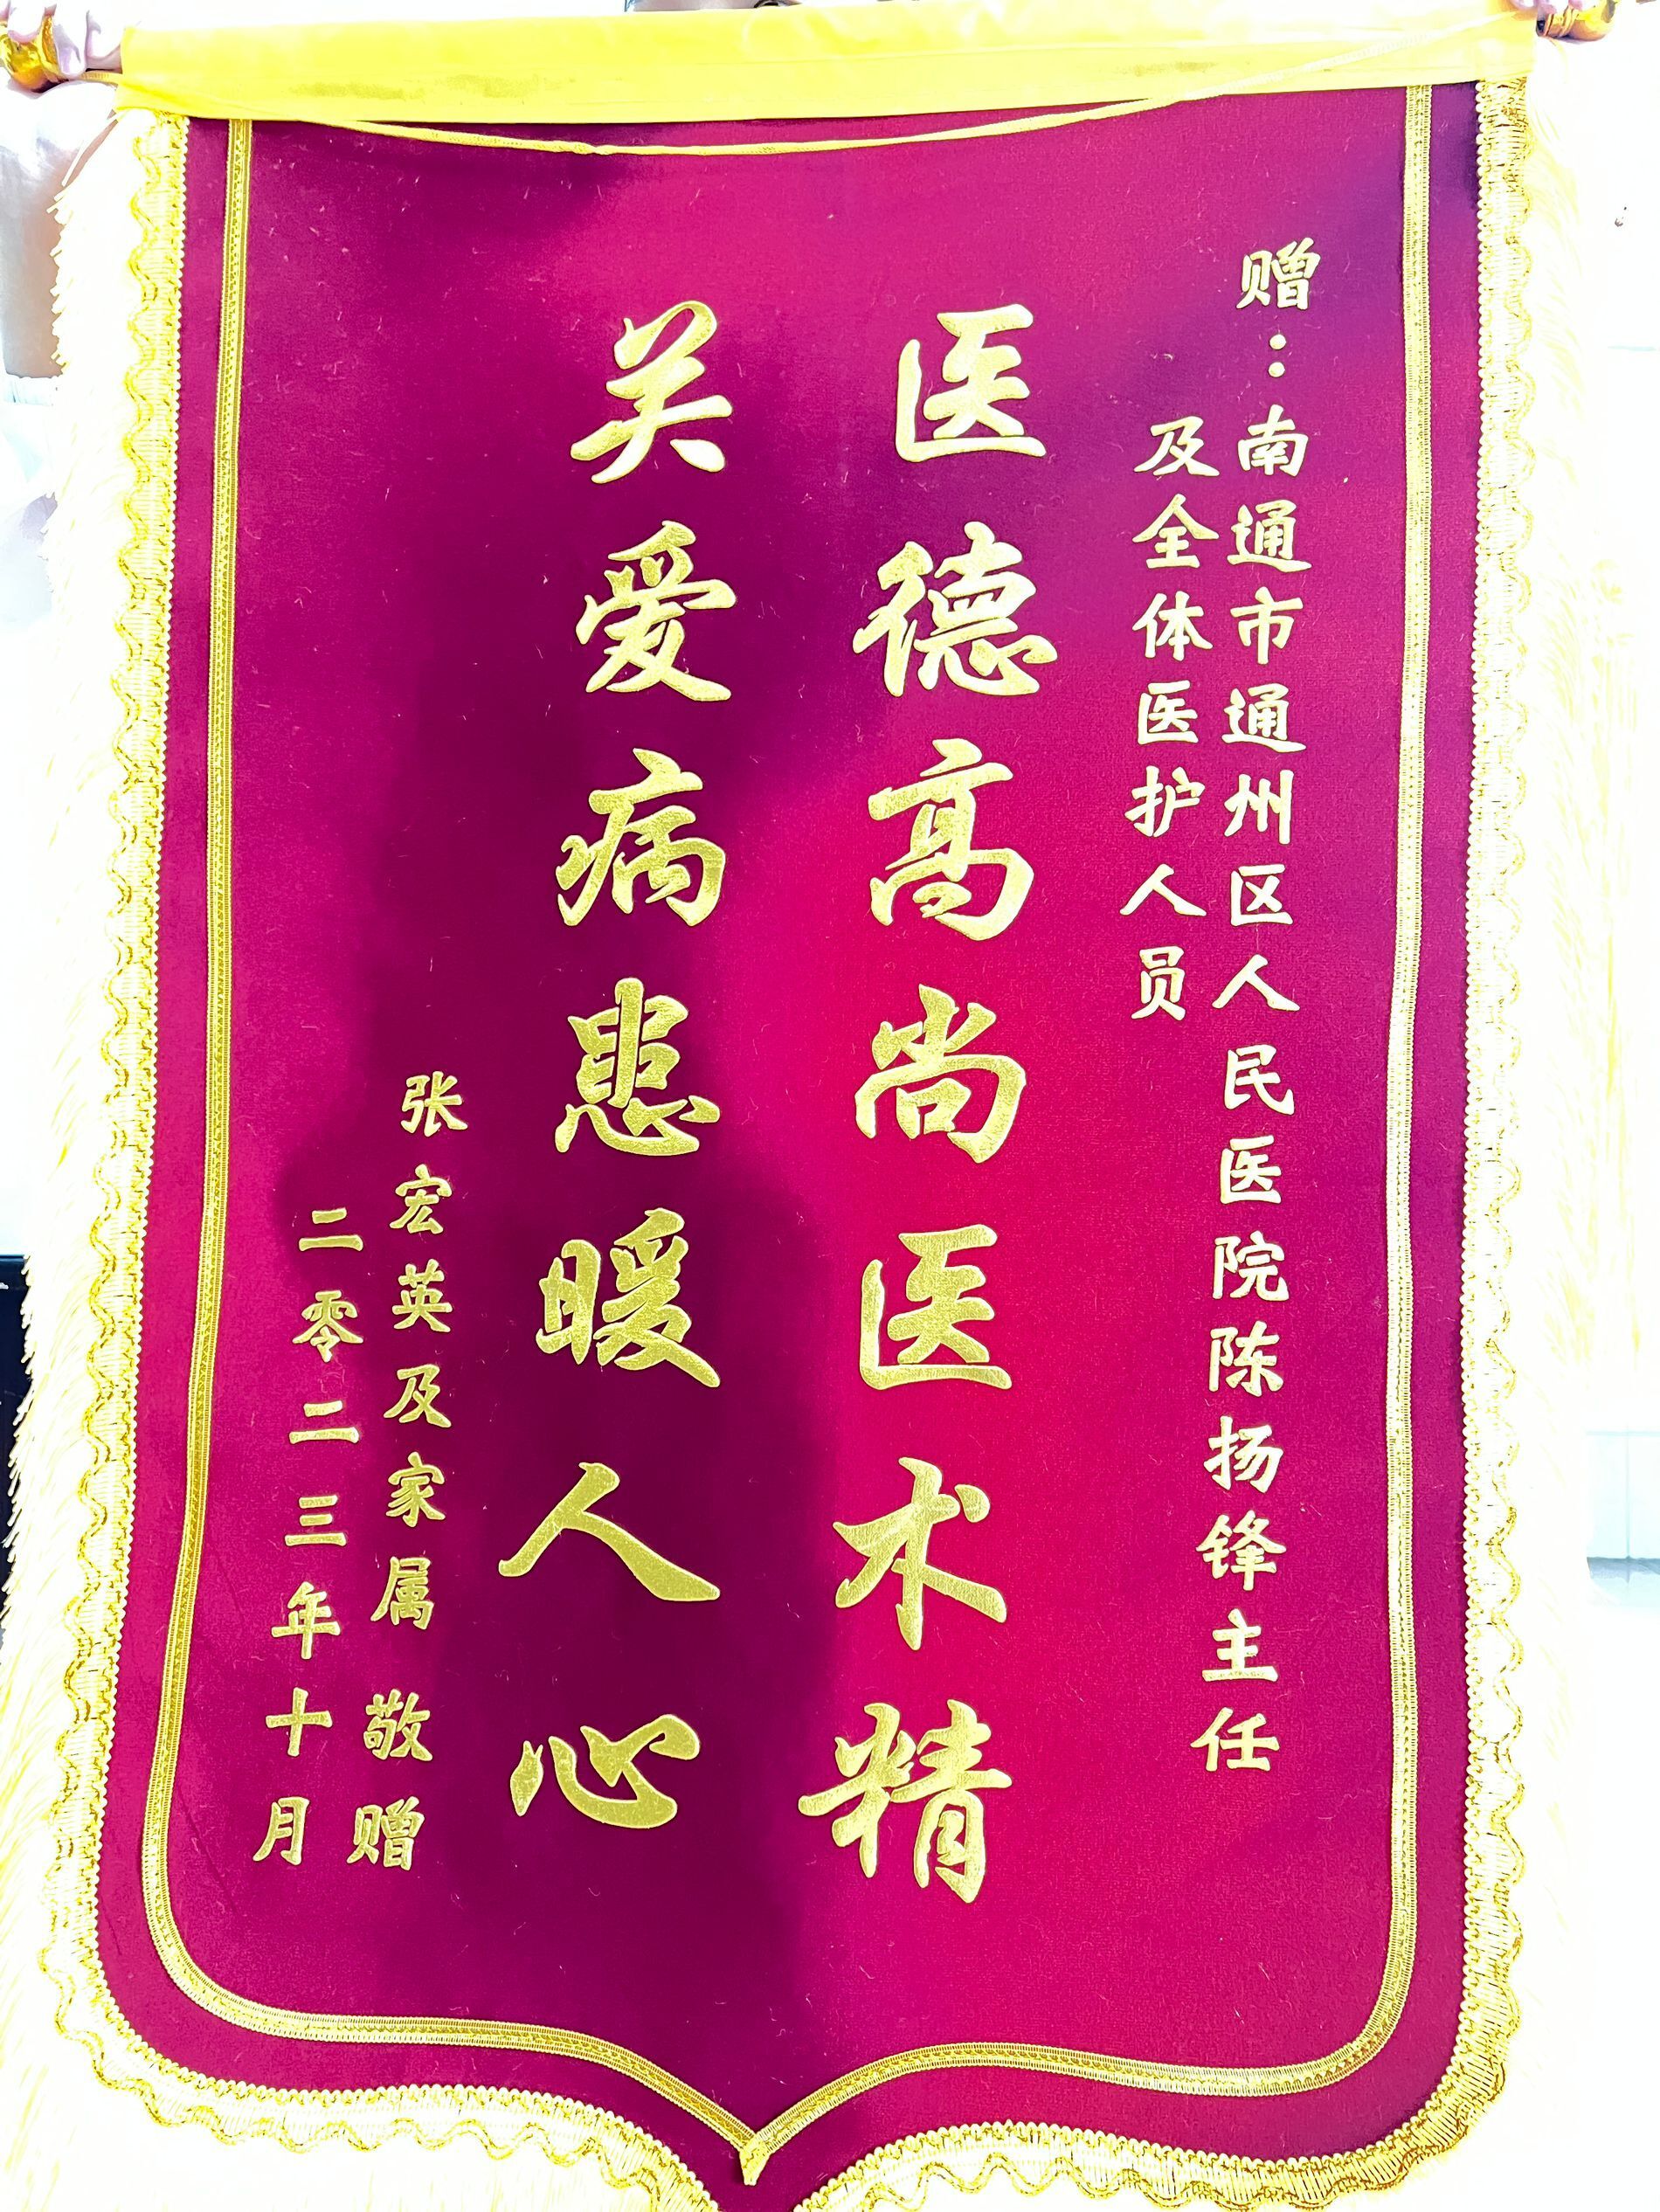 赠：南通市通州区人民医院陈扬锋主任
及全体医护人员
医德高尚医术精
关爱病患暖人心
张宏英及家属 敬赠
二零二三年十月